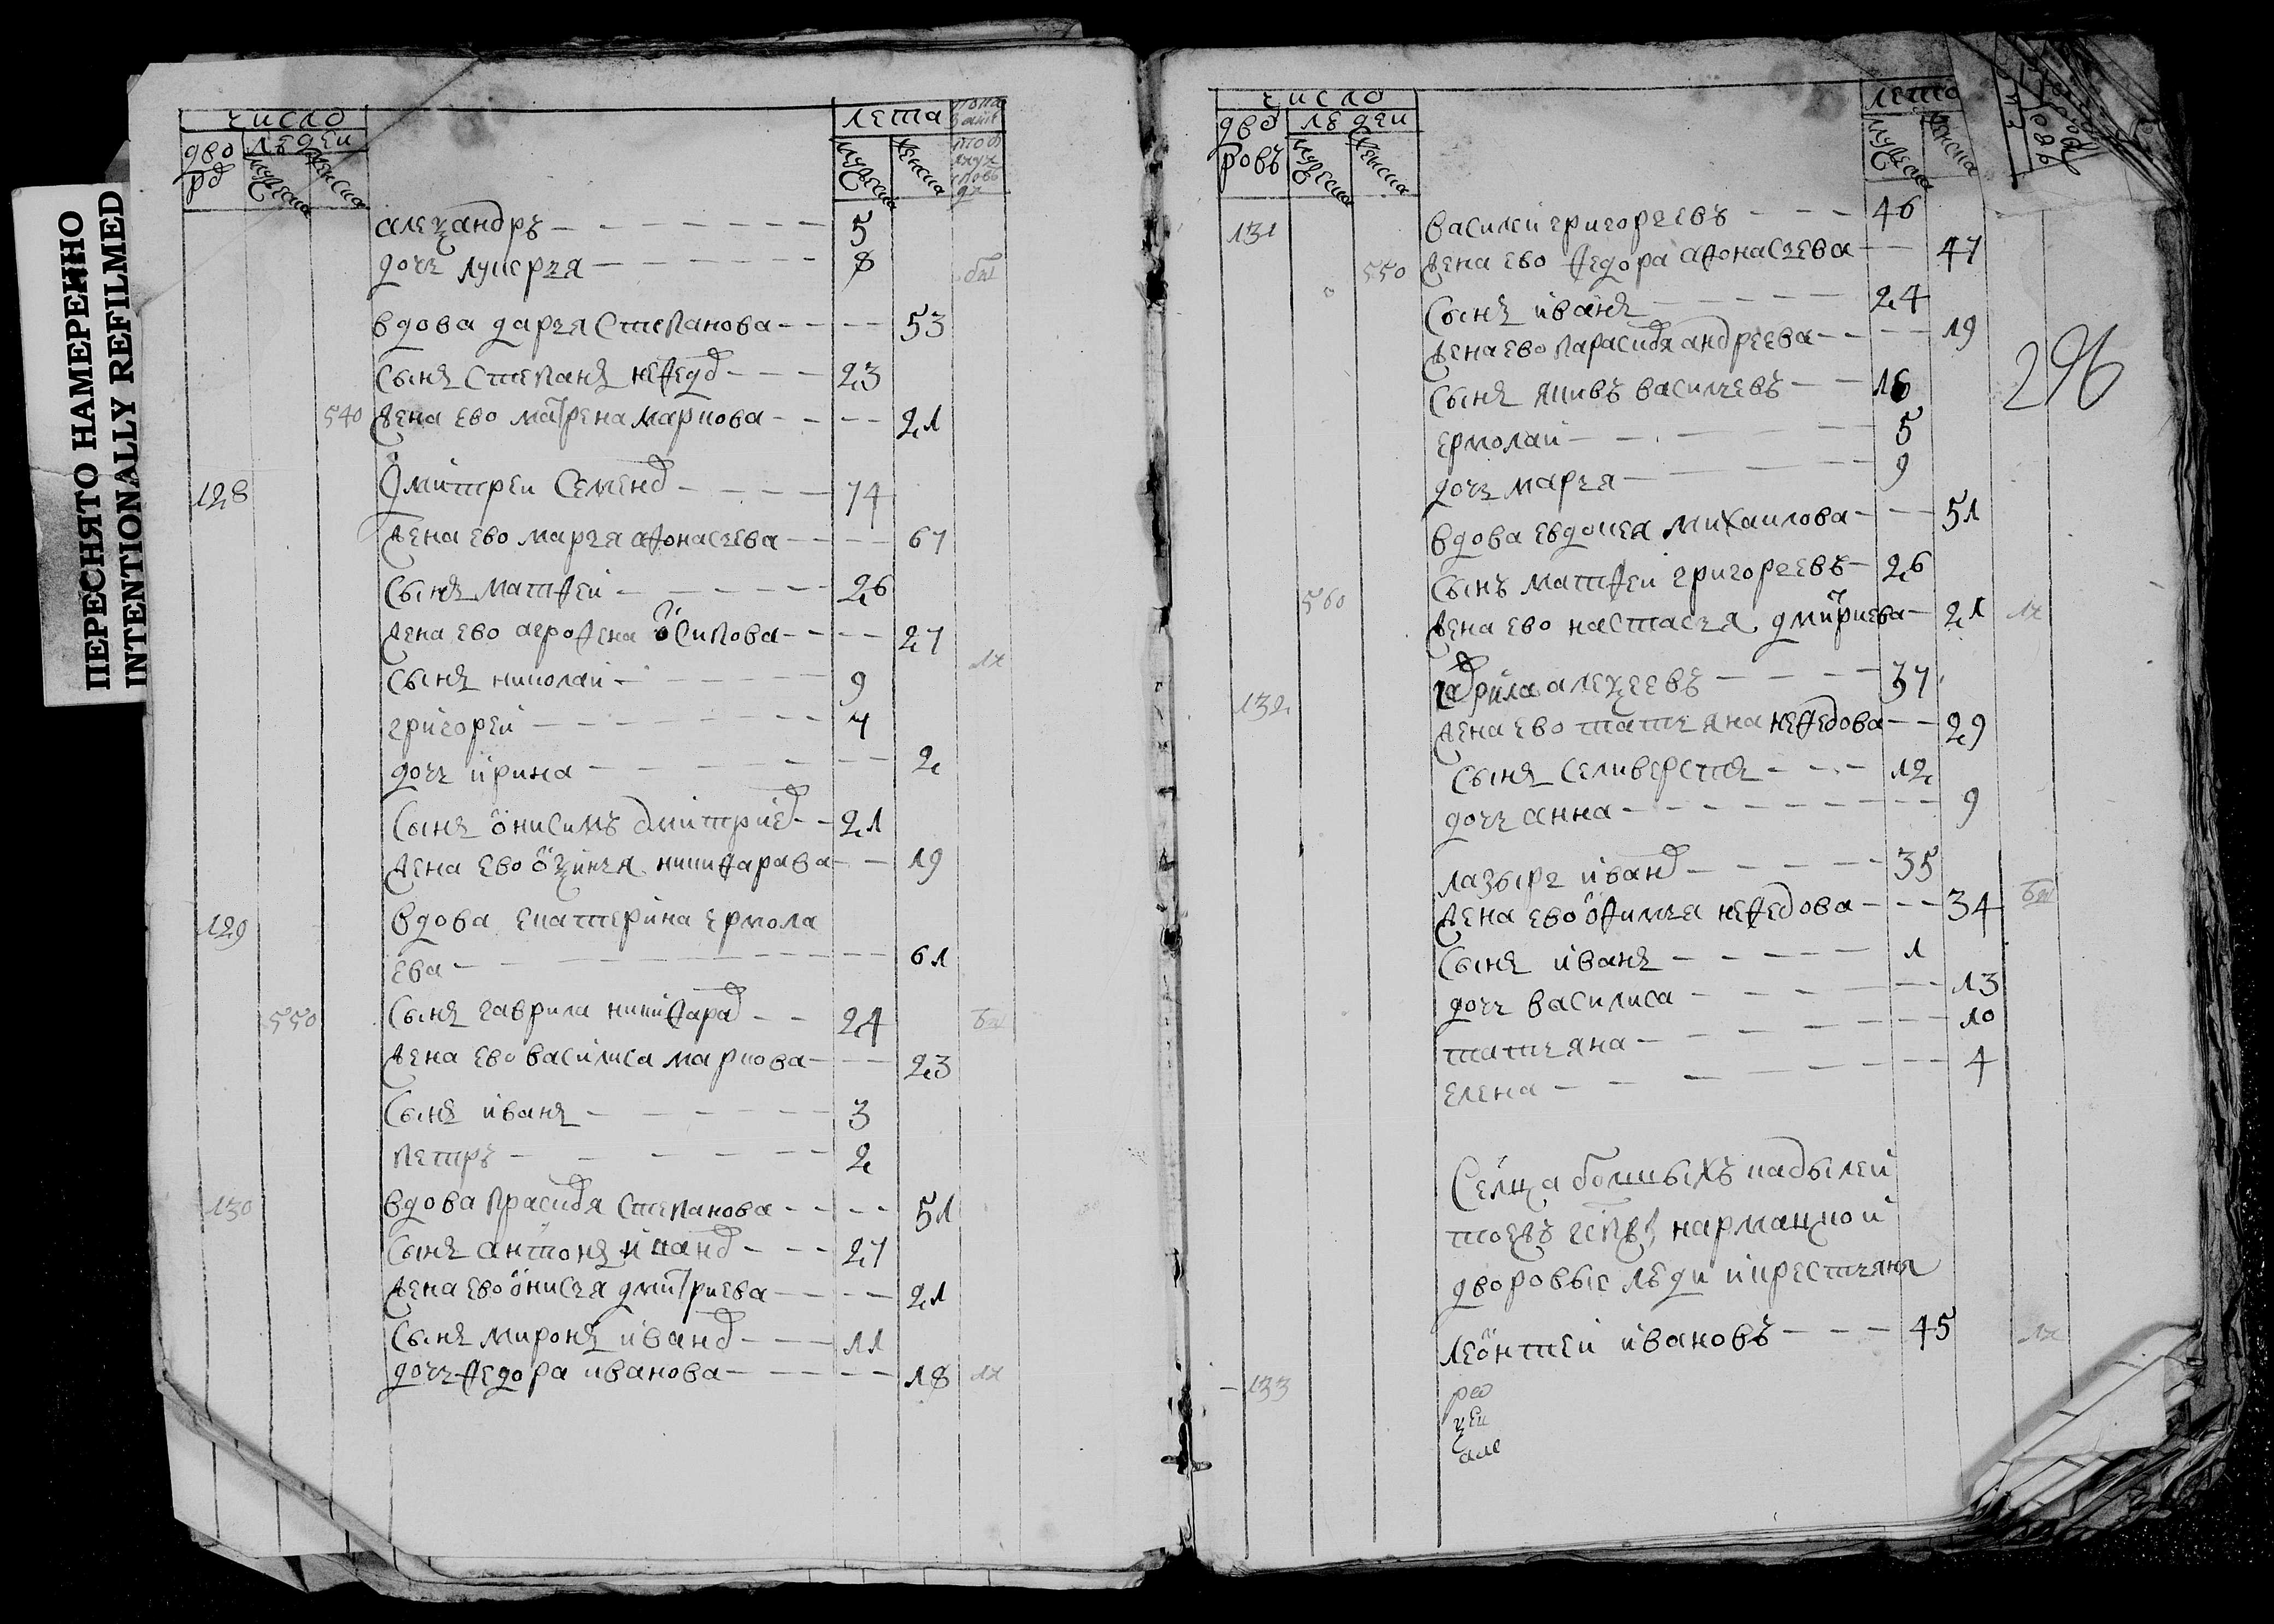 ПЕРЕСНЯТО НАМЕРЕННО
INTENTIONALLY REFILMED
число
лета
дво
людеи
ров
мужеска
женска
мужеска
женска
алеѯандръ 5
дочь лукерья 8
вдова дарья степанова 53
сынъ степанъ нефедов 23
540 жена ево матрена маркова 21
128 дмитреи семенов 74
жена ево марья афонасьева 67
сынъ матфеи 26
жена ево агрофена осипова 27
сынъ николаи 9
григореи 4
дочь ирина 2
сынъ онисимъ дмитриев 21
жена ево оѯинья никифарава 19
129 вдова екатерина ермола
ева 61
550 сынъ гаврила никифаров 24
жена ево василиса маркова 23
сынъ иванъ 3
петръ 2
130 вдова прасковя степанова 51
сынъ антонъ иванов 27
жена ево онисья дмитриева 21
сынъ миронъ иванов 11
дочь федора иванова 18
число
лета
дво
людеи
ровъ
мужеска
женска
мужеска
женска
296
131 василеи григорьевъ 46
550 жена ево федора афонасьева 47
сынъ иванъ 24
жена ево парасковя андреева 19
сынъ якивъ васильевъ 16
ермолаи 5
дочь марья 9
вдова евдокея михаилова 51
сынъ матфеи григорьевъ 26
560 жена ево настасья дмитриева 21
132 гаврила алеѯеевъ 37
жена ево татьяна нефедова 29
сынъ селиверстъ 12
дочь анна 9
лазырь иванов 35
жена ево офимья нефедова 34
сынъ иванъ 1
дочь василиса 13
татьяна 10
елена 4
селца болшыхъ кабылеи
тоежъ нармацкой
дворовые люди и крестьяня
леонтеи ивановъ 45
133